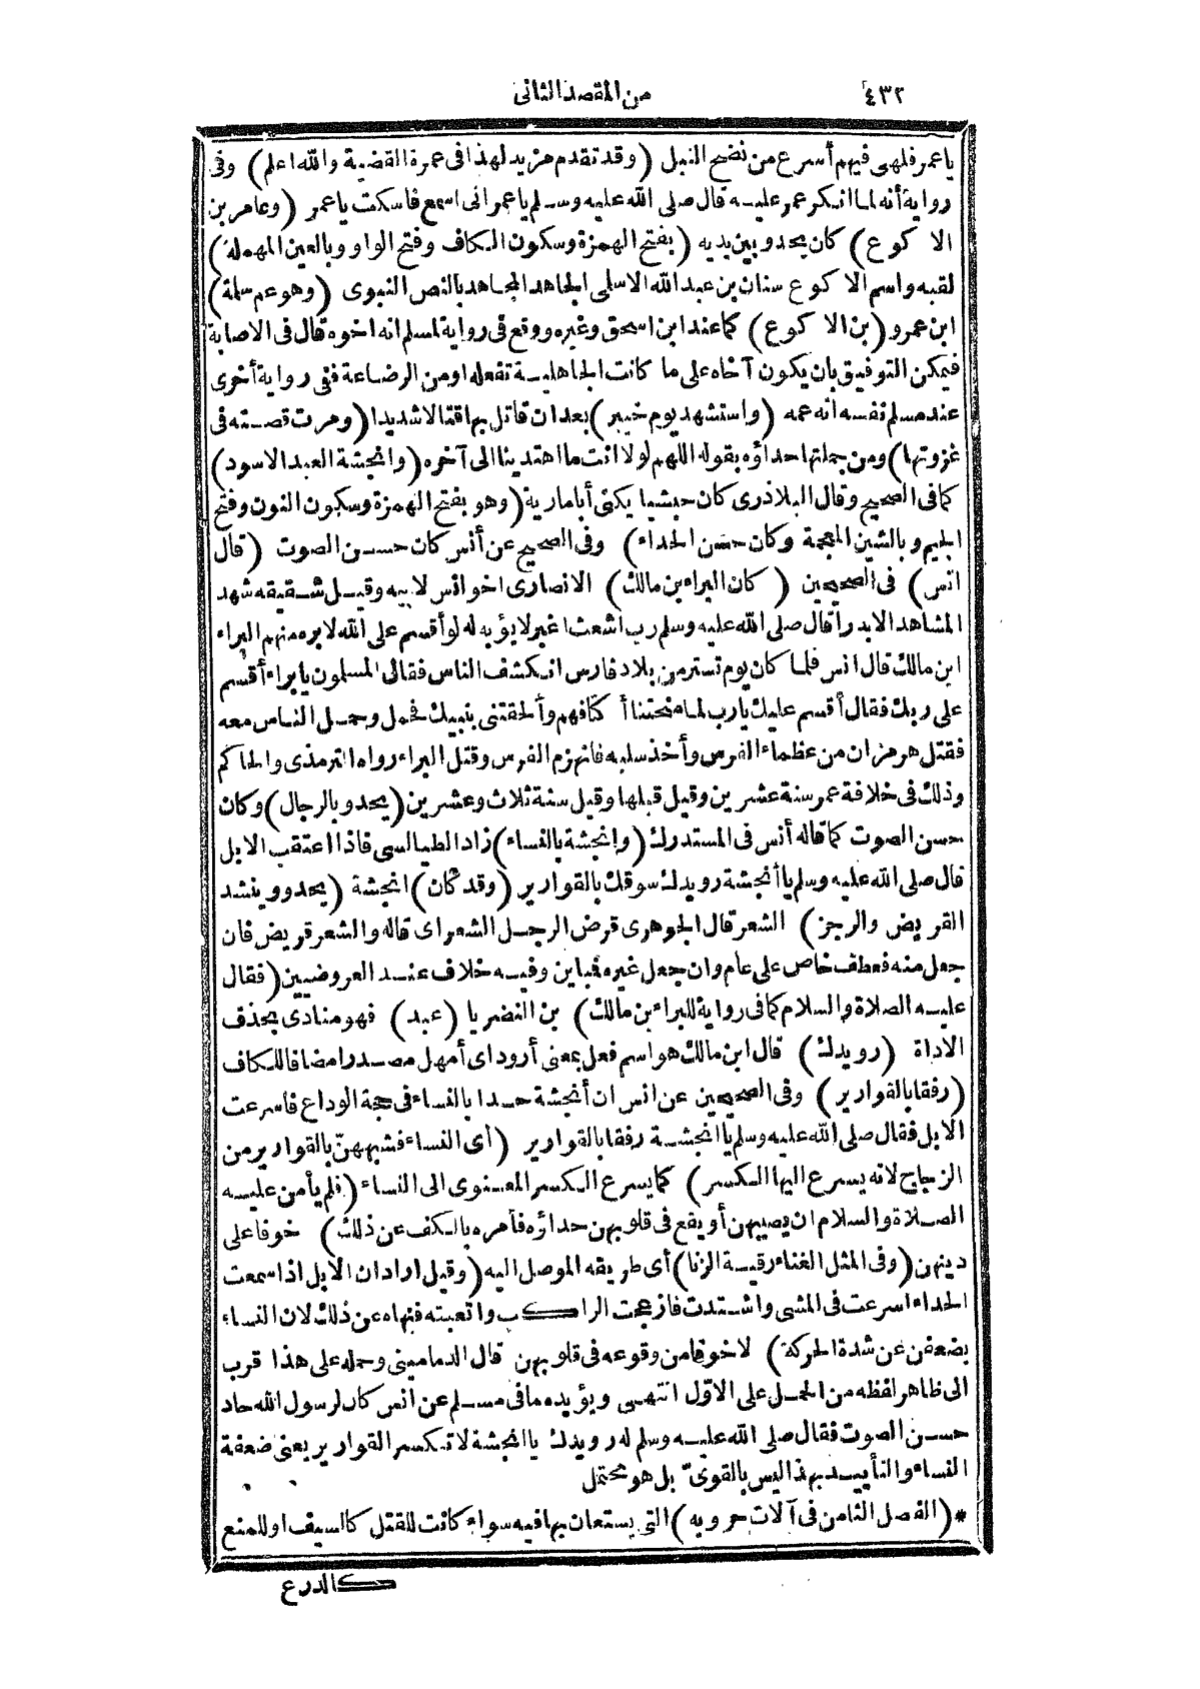 ٤٣٢
من المقصد الثانى
يا عمر فلهى فيهم أسرع من نضح النبل (وقد تقدم مزيد لهذا فى عمرة القضية والله اعلم) وفى
رواية أنه لما انكر عمر عليه قال صلى الله عليه وسلم يا عمر انى اسمع فاسكت يا عمر (وعامر بن
الاكوع) كان يحدو بين يديه (بفتح الهمزة وسكون الكاف وفتح الواو وبالعين المهملة)
لقبه واسم الاكوع سنان بن عبد الله الاسلمى الجاهد المجاهد بالنص النبوى (وهو عم سلمة)
ابن عمرو (بن الاكوع) كما عند ابن اسحق وغيره ووقع فى رواية لمسلم انه اخوه قال فى الاصابة
فيمكن التوفيق بان يكون آخاه على ما كانت الجاهلية تفعله او من الرضاعة ففى رواية أخرى
عند مسلم نفسه انه عمه (واستشهد يوم خيبر) بعد ان قاتل بها قتالا شديدا (ومرت قصته فى
غزوتها) ومن جملتها حداؤه بقوله اللهم لولا انت ما اهتدينا الى آخره (وانجشة العبد الاسود)
كما فى الصحيح وقال البلاذرى كان حبشيا يكنى أبا مارية (وهو بفتح الهمزة وسكون النون وفتح
الجيم وبالشين المعجمة وكان حسن الحداء) وفى الصحيح عن أنس كان حسن الصوت (قال
انس) فى الصحيحين (كان البراء بن مالك) الانصارى اخو انس لابيه وقيل شقيقه شهد
المشاهد الا بدرا قال صلى الله عليه وسلم رب اشعث اغبر لا يؤبه له لو أقسم على الله لابره منهم البراء
ابن مالك قال انس فلما كان يوم تستر من بلاد فارس انكشف الناس فقال المسلمون يا براء أقسم
على ربك فقال أقسم عليك يا رب لما منحتنا أكتافهم وألحقتنى بنبيك فحمل وحمل الناس معه
فقتل هرمزان من عظماء الفرس وأخذ سلبه فانهزم الفرس وقتل البراء رواه الترمذى والحاكم
وذلك فى خلافة عمر سنة عشرين وقيل قبلها وقيل سنة ثلاث وعشرين (يحدو بالرجال) وكان
حسن الصوت كما قاله أنس فى المستدرك (وانجشة بالنساء) زاد الطيالسى فاذا اعتقب الابل
قال صلى الله عليه وسلم يا أنجشة رويدك سوقك بالقوارير (وقد كان) انجشة (يحدو وينشد
القريض والرجز) الشعر قال الجوهرى قرض الرجل الشعر اى قاله والشعر قريض فان
جعل منه فعطف خاص على عام وان جعل غيره فباين وفيه خلاف عند العروضيين (فقال
عليه الصلاة والسلام كما فى رواية للبراء بن مالك) بن النضر يا (عبد) فهو منادى بحذف
الاداة (رويدك) قال ابن مالك هو اسم فعل بمعنى أرود اى أمهل مصدر امضافا للكاف
(رفقا بالقوارير) وفى الصحيحين عن انس ان أنجشة حدا بالنساء فى حجة الوداع فاسرعت
الابل فقال صلى الله عليه وسلم يا انجشة رفقا بالقوارير (أى النساء فشبههنّ بالقوارير من
الزجاج لانه يسرع اليها الكسر) كما يسرع الكسر المعنوى الى النساء (فلم يأمن عليه
الصلاة والسلام ان يصيبهن أو يقع فى قلوبهن حداؤه فأمره بالكف عن ذلك) خوفا على
دينهن (وفى المثل الغناء رقية الزنا) أى طريقه الموصل اليه (وقيل اراد ان الابل اذا سمعت
الحداء اسرعت فى المشى واشتدت فازعجت الراكب واتعبته فنهاه عن ذلك لان النساء
يضعفن عن شدة الحركة) لا خوفا من وقوعه فى قلوبهن قال الدمامينى وحمله على هذا قرب
الى ظاهر لفظه من الحمل على الاوّل انتهى ويؤيده ما فى مسلم عن انس كان لرسول الله حاد
حسن الصوت فقال صلى الله عليه وسلم له رويدك يا انجشة لا تكسر القوارير يعنى ضعفة
النساء والتأييد بهذا ليس بالقوىّ بل هو محتمل
* (الفصل الثامن فى آلات حروبه) التى يستعان بها فيه سواء كانت للقتل كالسيف او للمنع
كالدرع